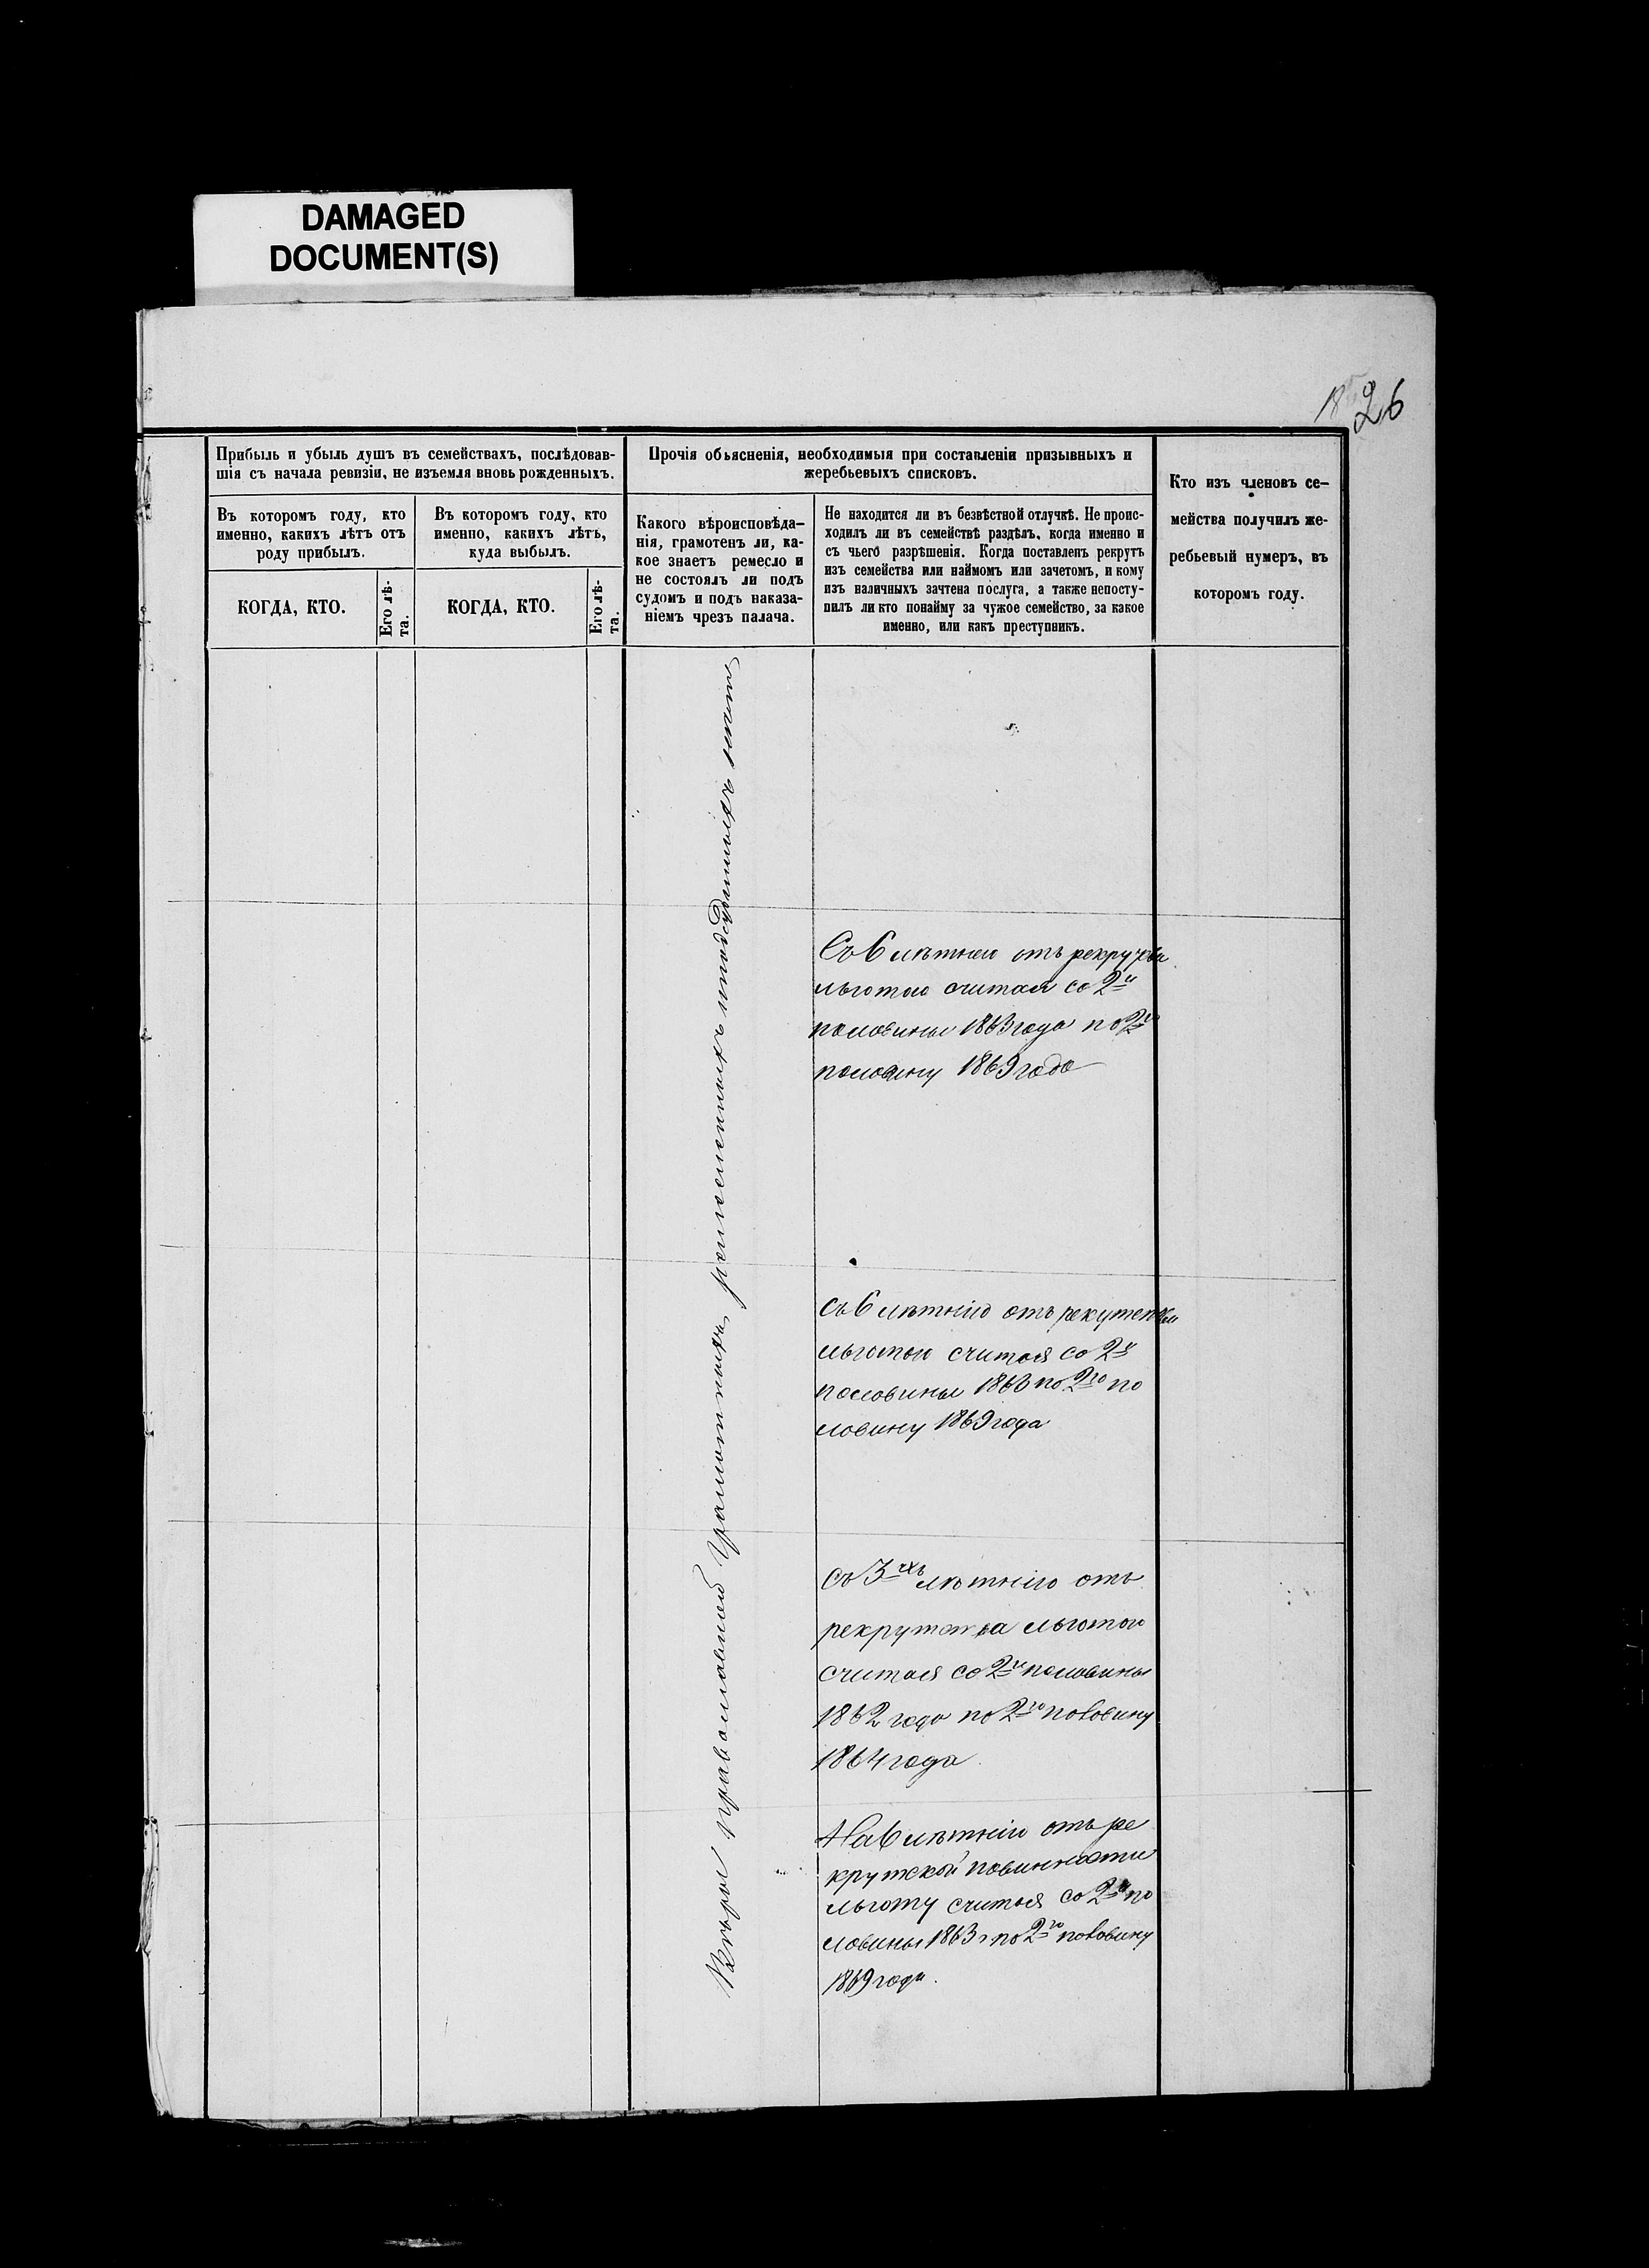 DAMAGED
DOCUMENT(S)
18 26
Прибыль и убыль душъ въ семействахъ, послѣдовав-
шія съ начала ревизіи, не изъемля вновь рожденныхъ.
Въ которомъ году, кто
именно, какихъ лѣтъ отъ
роду прибылъ.
КОГДА, КТО.
Его лѣ-
та.
Въ которомъ году, кто
именно, какихъ лѣтъ,
куда выбылъ.
КОГДА, КТО.
Его лѣ-
та.
Прочія объясненія, необходимыя при составленіи призывныхъ и
жеребьевыхъ списковъ.
Какого вѣроисповѣда-
нія, грамотенъ ли, ка-
кое знаетъ ремесло и
не состоялъ ли подъ
судомъ и подъ наказа-
ніемъ чрезъ палача.
Не находится ли въ безвѣстной отлучкѣ. Не проис-
ходилъ ли въ семействѣ раздѣлъ, когда именно и
съ чьего разрѣшенія. Когда поставленъ рекрутъ
изъ семейства или наймомъ или зачетомъ, и кому
изъ наличныхъ зачтена послуга, а также непосту-
пилъ ли кто понайму за чужое семейство, за какое
именно, или какъ преступникъ.
Кто изъ членовъ се-
мейства получилъ же-
ребьевый нумеръ, въ
которомъ году.
православной грамотныхъ, ремесленныхъ иподсудимыхъ
Съ 6 лѣтнею отъ
льготою считая со 2й
половины 1863 года по 2ю
половину 1869 года
съ 6 лѣтнію отъ
льготою считая со 2й
половины 1863 по 2ю по
ловину 1869 года
съ 3хъ лѣтнію отъ
рекрутства льготою
считая со 2й половины
1862 года по 2ю половину
1864 года
На 6 лѣтнію отъ ре
крутской повинности
льготу считая со 2й по
ловины 1863 г по 2ю половину
1869 года.